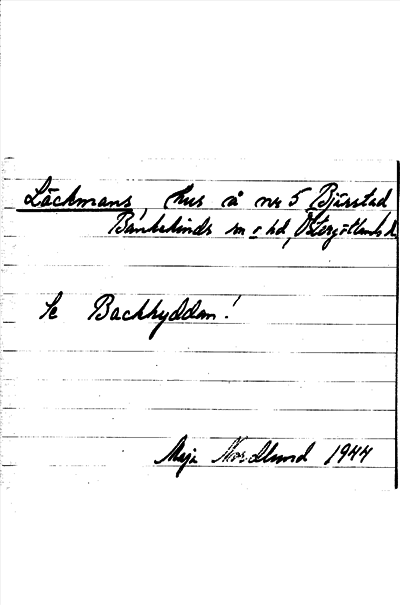 Läckmans, hus å nr 5 Bjärstad
Bankekinds sn o hd, Östergötlands l.
Se Backhyddan!
Maja Nordlund 1944